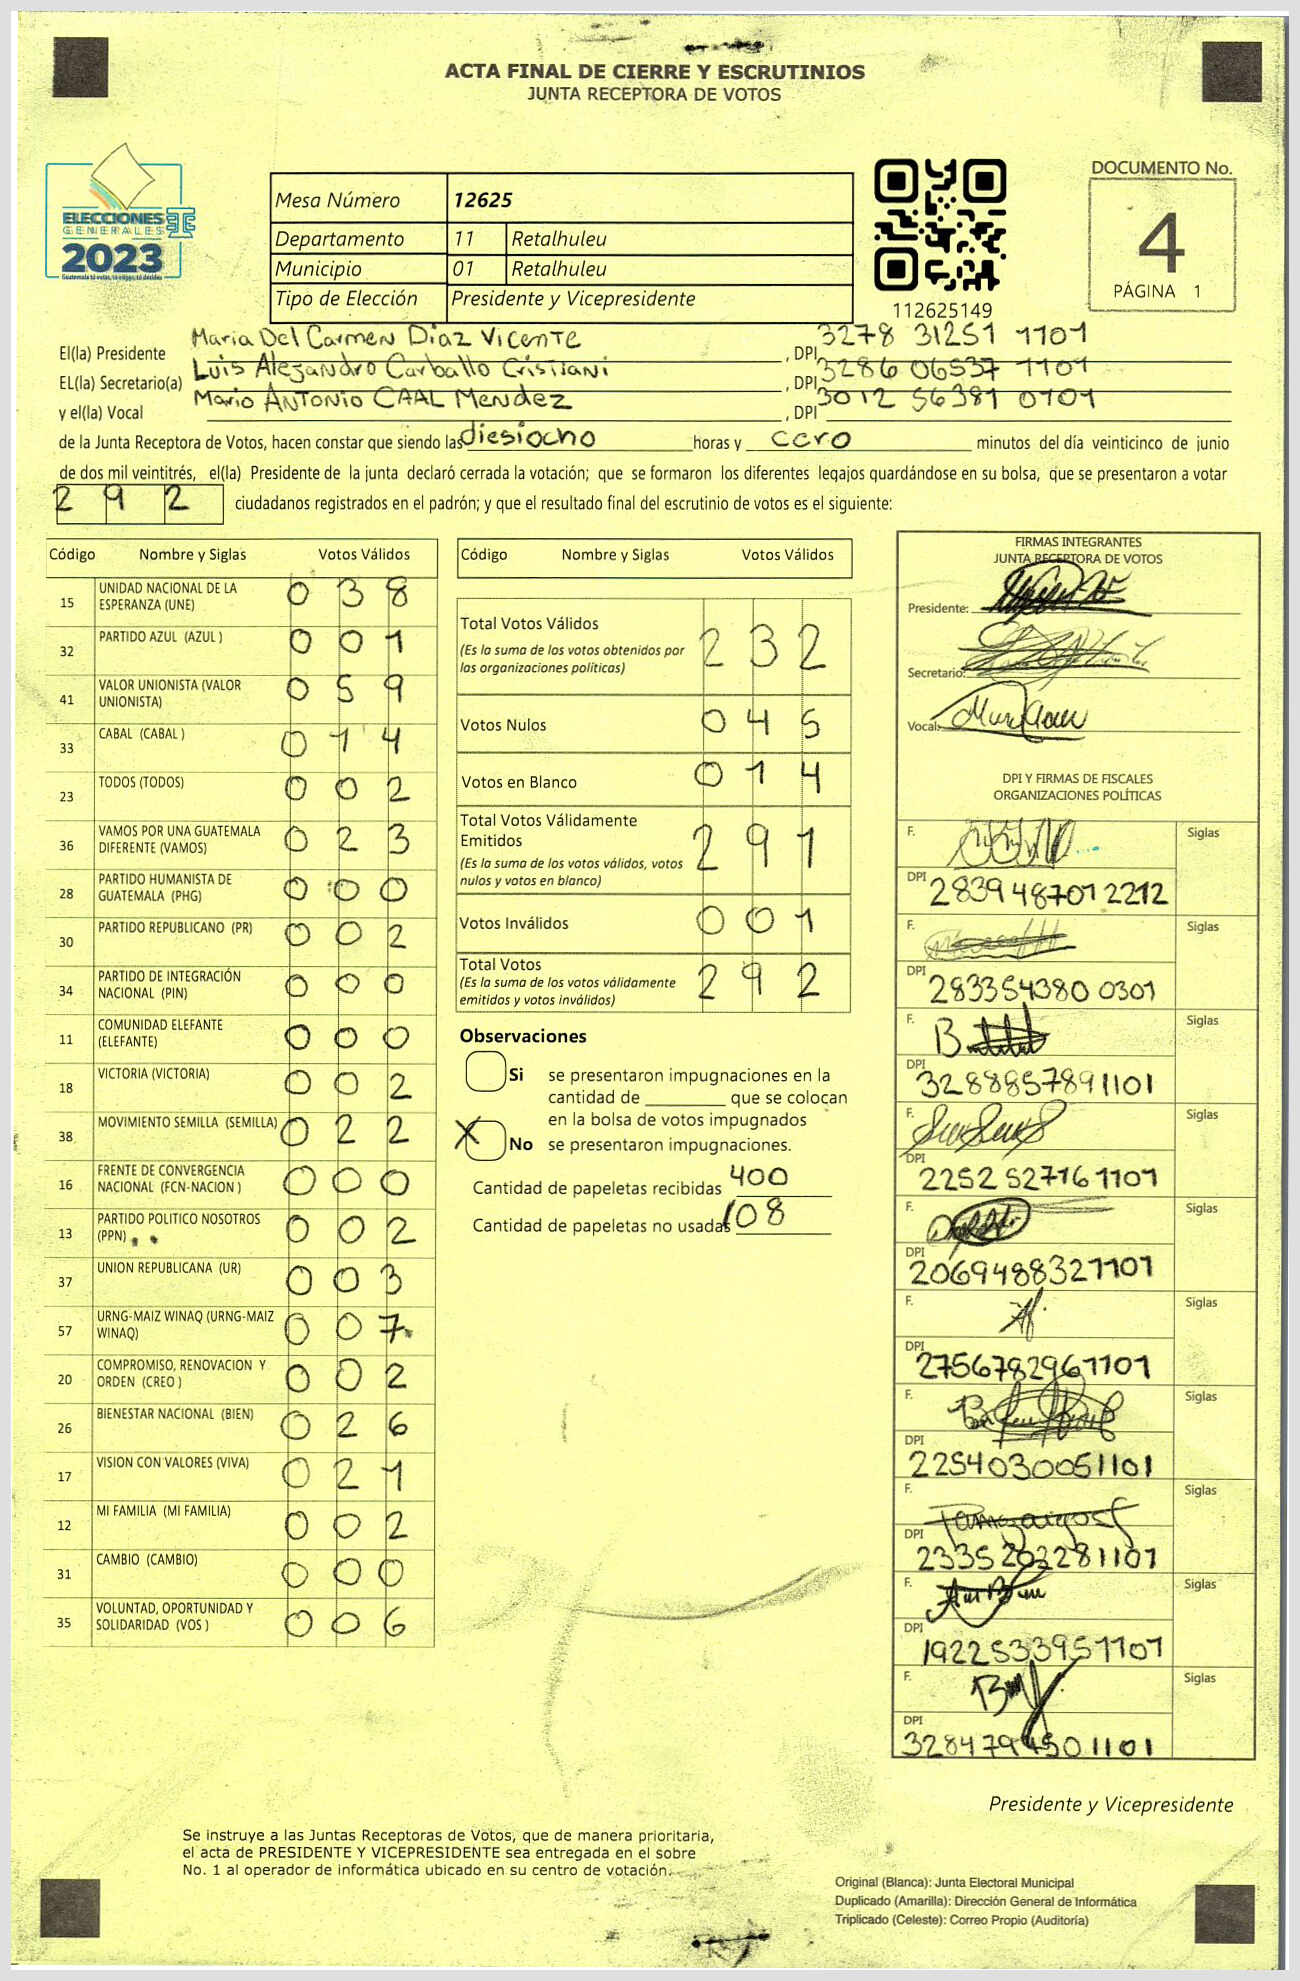 ACTA FINAL DE CIERRE Y ESCRUTINIOS
JUNTA RECEPTORA DE VOTOS
ELECCIONES
GENERALES
2023
Guatemala tú votas, tú eliges, tú decides
Mesa Número 12625
Departamento 11 Retalhuleu
Municipio 01 Retalhuleu
Tipo de Elección Presidente y Vicepresidente
112625149
DOCUMENTO No.
4
PÁGINA 1
El(la) Presidente Maria Del Carmen Diaz Vicente , DPI 3278 31251 1101
EL(la) Secretario(a) Luis Alejandro Carballo Cristiani , DPI 3286 06537 1101
y el(la) Vocal Mario ANTONIO CAAL Mendez , DPI 3012 56381 0101
de la Junta Receptora de Votos, hacen constar que siendo las diesiocho horas y cero minutos del día veinticinco de junio
de dos mil veintitrés, el(la) Presidente de la junta declaró cerrada la votación; que se formaron los diferentes legajos quardándose en su bolsa, que se presentaron a votar
292 ciudadanos registrados en el padrón; y que el resultado final del escrutinio de votos es el siguiente:
Código Nombre y Siglas Votos Válidos
15 UNIDAD NACIONAL DE LA ESPERANZA (UNE) 0 3 8
32 PARTIDO AZUL (AZUL ) 0 0 1
41 VALOR UNIONISTA (VALOR UNIONISTA) 0 5 9
33 CABAL (CABAL ) 0 1 4
23 TODOS (TODOS) 0 0 2
36 VAMOS POR UNA GUATEMALA DIFERENTE (VAMOS) 0 2 3
28 PARTIDO HUMANISTA DE GUATEMALA (PHG) 0 0 0
30 PARTIDO REPUBLICANO (PR) 0 0 2
34 PARTIDO DE INTEGRACIÓN NACIONAL (PIN) 0 0 0
11 COMUNIDAD ELEFANTE (ELEFANTE) 0 0 0
18 VICTORIA (VICTORIA) 0 0 2
38 MOVIMIENTO SEMILLA (SEMILLA) 0 2 2
16 FRENTE DE CONVERGENCIA NACIONAL (FCN-NACION ) 0 0 0
13 PARTIDO POLITICO NOSOTROS (PPN) 0 0 2
37 UNION REPUBLICANA (UR) 0 0 3
57 URNG-MAIZ WINAQ (URNG-MAIZ WINAQ) 0 0 7
20 COMPROMISO, RENOVACION Y ORDEN (CREO ) 0 0 2
26 BIENESTAR NACIONAL (BIEN) 0 2 6
17 VISION CON VALORES (VIVA) 0 2 1
12 MI FAMILIA (MI FAMILIA) 0 0 2
31 CAMBIO (CAMBIO) 0 0 0
35 VOLUNTAD, OPORTUNIDAD Y SOLIDARIDAD (VOS ) 0 0 6
Código Nombre y Siglas Votos Válidos
Total Votos Válidos 2 3 2
(Es la suma de los votos obtenidos por
las organizaciones políticas)
Votos Nulos 0 4 5
Votos en Blanco 0 1 4
Total Votos Válidamente
Emitidos 2 9 1
(Es la suma de los votos válidos, votos
nulos y votos en blanco)
Votos Inválidos 0 0 1
Total Votos 2 9 2
(Es la suma de los votos válidamente
emitidos y votos inválidos)
Observaciones
Si se presentaron impugnaciones en la
cantidad de ________ que se colocan
en la bolsa de votos impugnados
X No se presentaron impugnaciones.
Cantidad de papeletas recibidas 400
Cantidad de papeletas no usadas 108
FIRMAS INTEGRANTES
JUNTA RECEPTORA DE VOTOS
Presidente:
Secretario:
Vocal:
DPI Y FIRMAS DE FISCALES
ORGANIZACIONES POLÍTICAS
F. Siglas
DPI 2839 48701 2212
F. Siglas
DPI 283354380 0301
F. Siglas
DPI 3288857891101
F. Siglas
DPI 2252 52716 1101
F. Siglas
DPI 2069488321101
F. Siglas
DPI 2756782961101
F. Siglas
DPI 2254030051101
F. Siglas
DPI 2335202281101
F. Siglas
DPI 1922533951101
F. Siglas
DPI 3284794501101
Presidente y Vicepresidente
Se instruye a las Juntas Receptoras de Votos, que de manera prioritaria,
el acta de PRESIDENTE Y VICEPRESIDENTE sea entregada en el sobre
No. 1 al operador de informática ubicado en su centro de votación.
Original (Blanca): Junta Electoral Municipal
Duplicado (Amarilla): Dirección General de Informática
Triplicado (Celeste): Correo Propio (Auditoría)